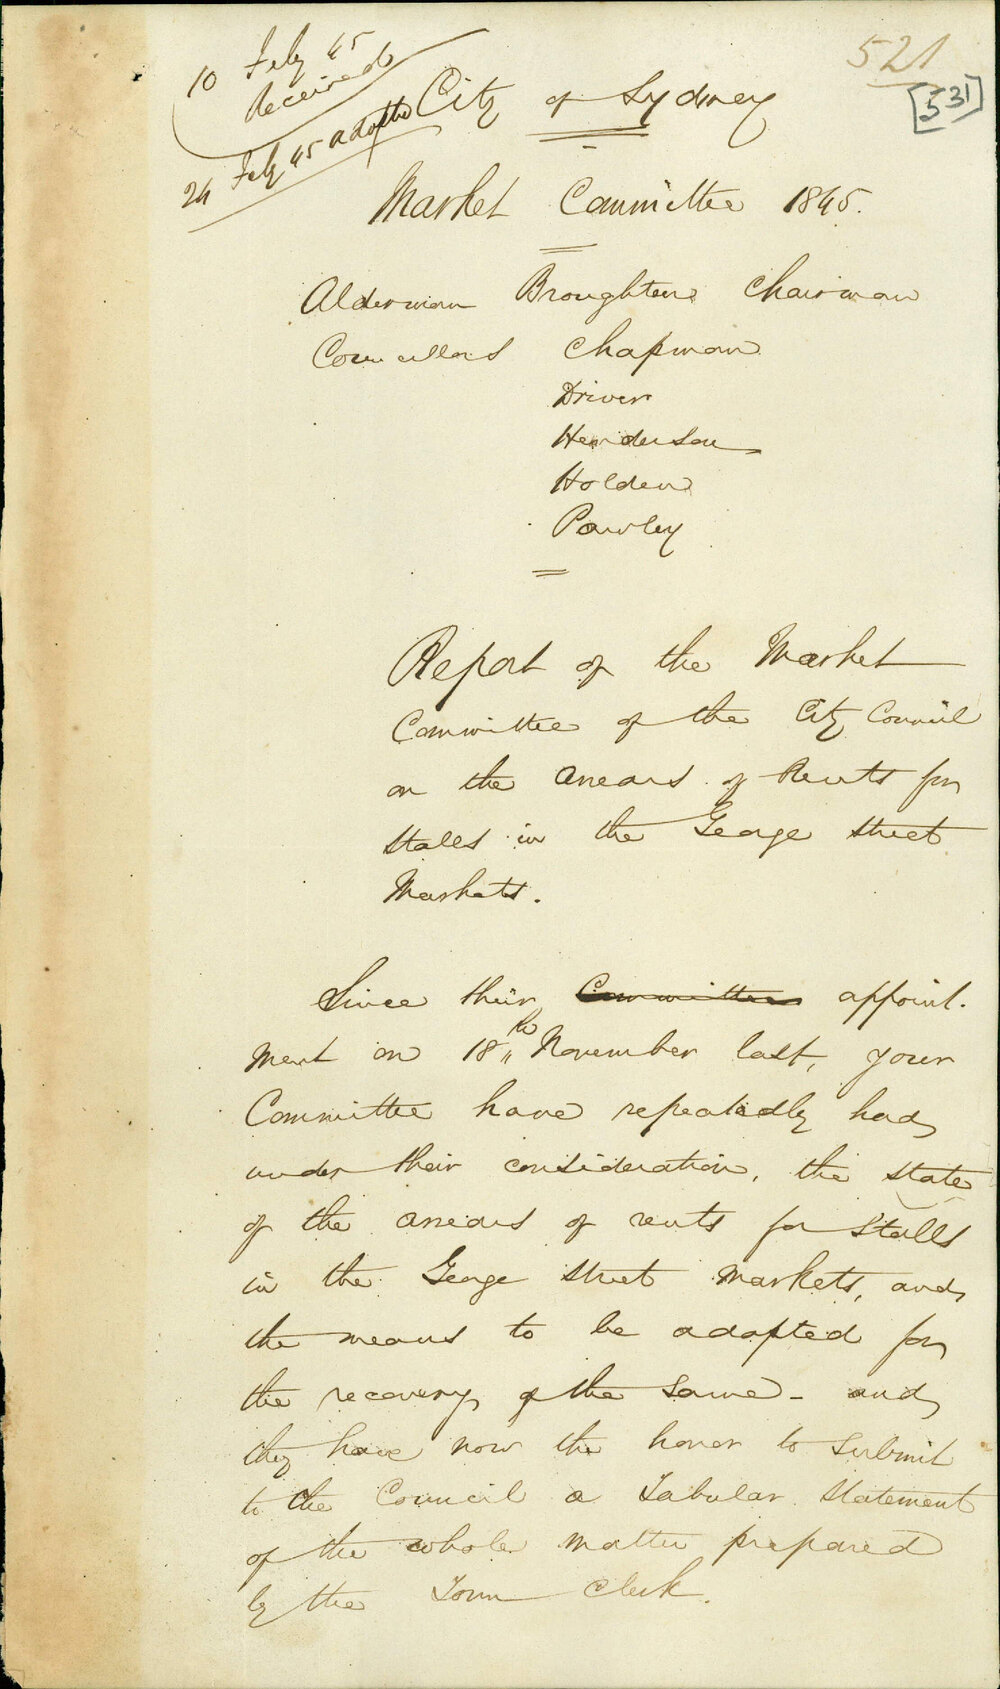 10 Feby 45
Received
24 Feby 45 adopted
521
[531]
City of Sydney
Market Committee 1845.
Alderman Broughton Chairman
Councillors Chapman
Driver
Henderson
Holden
Pawley
Report of the Market
Committee of the City Council
on the Arrears of Rents for
Stalls in the George Street
Markets.
Since their Committee appoint-
ment on 18th November last, your
Committee have repeatedly had
under their consideration, the state
of the arrears of rents for Stalls
in the George Street Markets, and
the means to be adopted for
the recovery of the same - and
they have now the honor to submit
to the Council a Tabular Statement
of the whole matter prepared
by the Town Clerk.